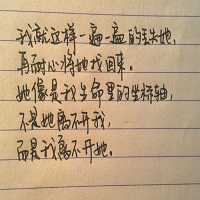 我就这样一遍一遍的丢失她，
再耐心将她找回来。
她像是我生命里的坐标轴，
不是她离不开我，
而是我离不开她。